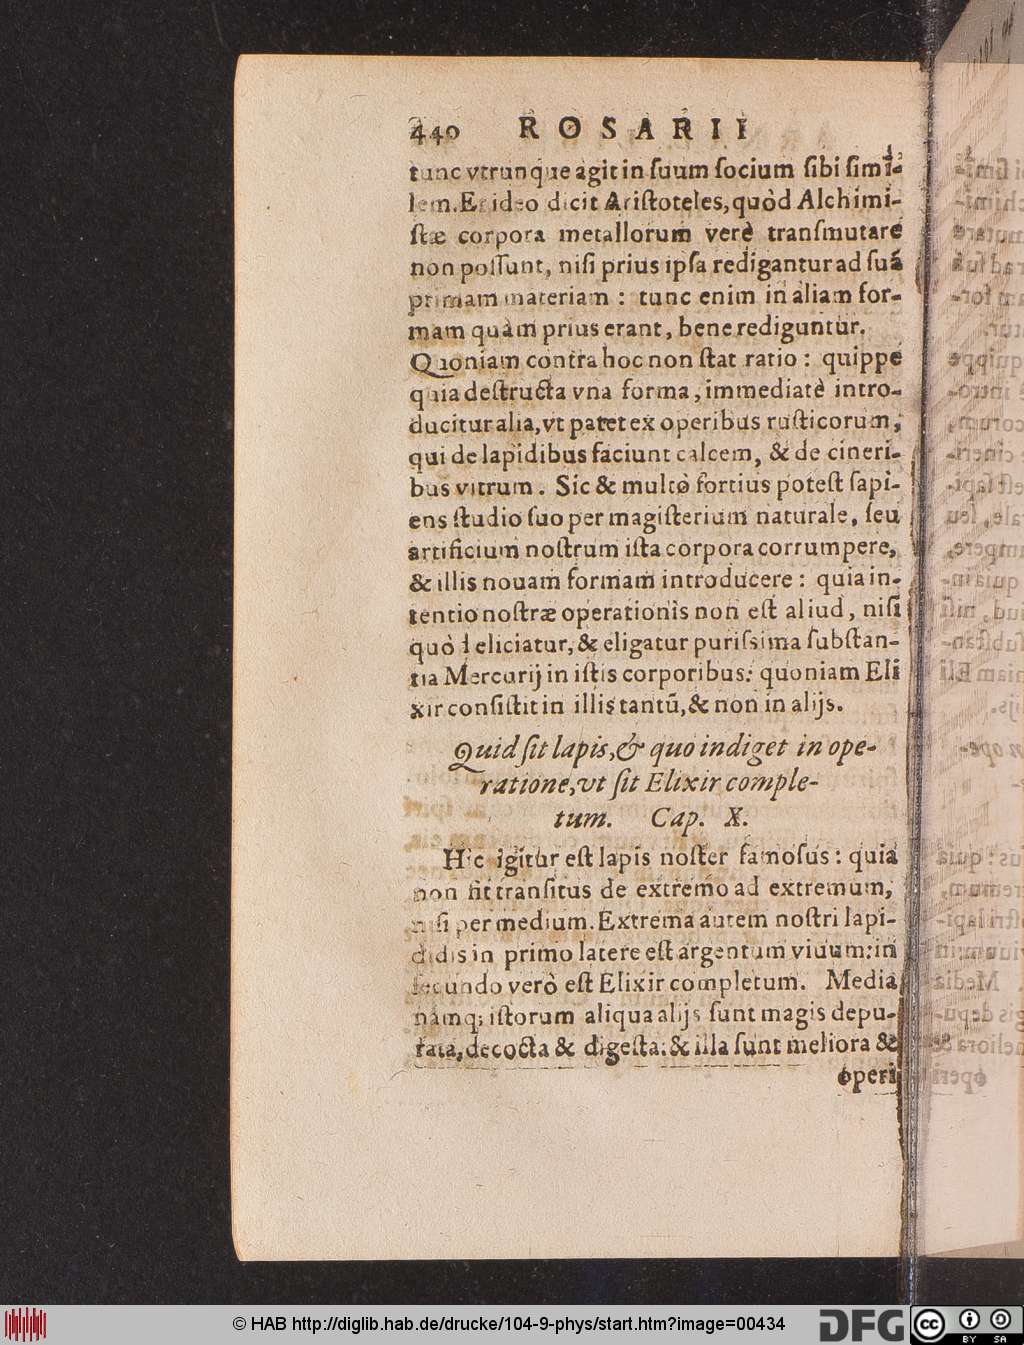 440 ROSARII
tunc vtrunque agit in ſuum ſocium ſibi ſimi-
lem. Et ideo dicit Ariſtoteles, quòd Alchimi-
ſtæ corpora metallorum verè tranſmutare
non poſſunt, niſi prius ipſa redigantur ad ſuã
primam materiam : tunc enim in aliam for-
mam quàm prius erant, bene rediguntur.
Quoniam contra hoc non ſtat ratio : quippe
quia deſtructa vna forma, immediatè intro-
ducitur alia, vt patet ex operibus ruſticorum,
qui de lapidibus faciunt calcem, & de cineri-
bus vitrum. Sic & multò fortius poteſt ſapi-
ens ſtudio ſuo per magiſterium naturale, ſeu
artificium noſtrum iſta corpora corrumpere,
& illis nouam formam introducere : quia in-
tentio noſtræ operationis non eſt aliud, niſi
quòd eliciatur, & eligatur puriſsima ſubſtan-
tia Mercurij in iſtis corporibus: quoniam Eli
xir conſiſtit in illis tantũ, & non in alijs.
Quid ſit lapis, & quo indiget in ope-
ratione, vt ſit Elixir comple-
tum. Cap. X.
Hic igitur eſt lapis noſter famoſus : quia
non fit tranſitus de extremo ad extremum,
niſi per medium. Extrema autem noſtri lapi-
didis in primo latere eſt argentum viuum: in
ſecundo verò eſt Elixir completum. Media
namq; iſtorum aliqua alijs ſunt magis depu-
rata, decocta & digeſta: & illa ſunt meliora &
operi
© HAB http://diglib.hab.de/drucke/104-9-phys/start.htm?image=00434
DFG
cc BY SA